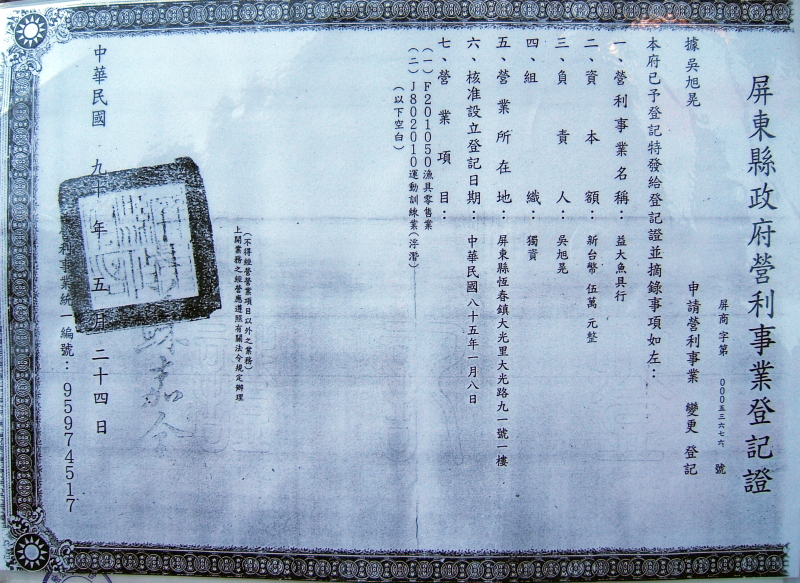 屏東縣政府營利事業登記證
屏商字第 000五三六七六 號
據 吳旭晃 申請營利事業 變更 登記
本府已予登記特發給登記證並摘錄事項如左：
一、營利事業名稱：益大魚具行
二、資本額：新台幣 伍萬 元整
三、負責人：吳旭晃
四、組織：獨資
五、營業所在地：屏東縣恆春鎮大光里大光路九一號一樓
六、核准設立登記日期：中華民國 八十五年一月八日
七、營業項目：
（一）F201050漁具零售業
（二）J802010運動訓練業（浮潛）
（以下空白）
（不得經營營業項目以外之業務）
上開業務之經營應遵照有關法令規定辦理
蘇嘉全
中華民國 九十年 五月 二十四日
利事業統一編號：95974517